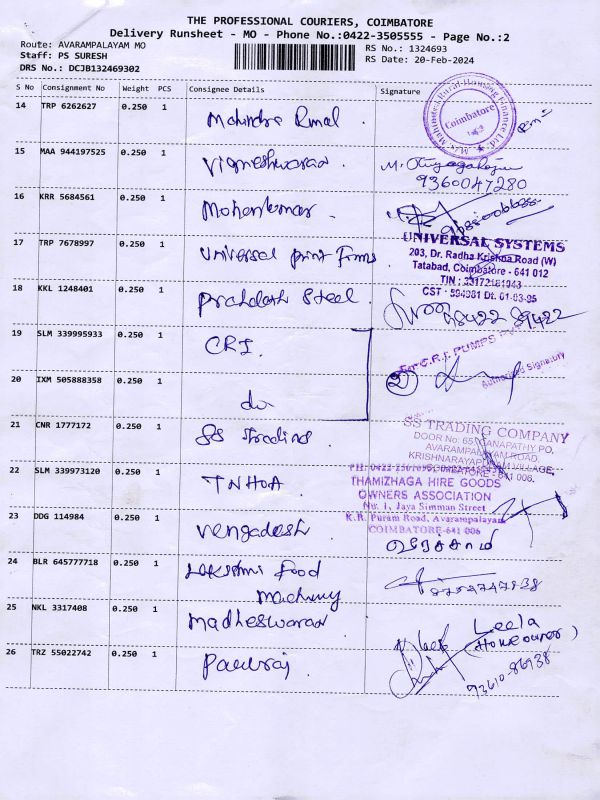 THE PROFESSIONAL COURIERS, COIMBATORE
Delivery Runsheet - MO - Phone No.:0422-3505555 - Page No.:2
Route: AVARAMPALAYAM MO
Staff: PS SURESH
DRS No.: DCJB132469302
RS No.: 1324693
RS Date: 20-Feb-2024
S No Consignment No Weight PCS Consignee Details Signature
14 TRP 6262627 0.250 1 Mahindra Rural
Coimbatore
15 MAA 944197525 0.250 1 Vigneshwaran
9360047280
16 KRR 5684561 0.250 1 Mohankumar
17 TRP 7678997 0.250 1 Universal print Firms
UNIVERSAL SYSTEMS
203, Dr. Radha Krishna Road (W)
Tatabad, Coimbatore - 641 012
TIN : 33172181943
CST - 594981 Dt. 01-03-95
18 KKL 1248401 0.250 1 Prahalath Steel
98422 89422
19 SLM 339995933 0.250 1 CRI
For C.R.I. PUMPS
Authorised Signatory
2
20 IXM 505888358 0.250 1 do
21 CNR 1777172 0.250 1 SS Trading
SS TRADING COMPANY
DOOR No: 65, GANAPATHY PO,
AVARAMPALAYAM ROAD,
KRISHNARAYAPURAM VILLAGE,
COIMBATORE - 641 006.
22 SLM 339973120 0.250 1 TNHOA
THAMIZHAGA HIRE GOODS
OWNERS ASSOCIATION
No: 1, Jaya Simman Street
K.R. Puram Road, Avarampalayam
COIMBATORE-641 006
23 DDG 114984 0.250 1 Vengadesh
24 BLR 645777718 0.250 1 Lakshmi Food
Machinery
25 NKL 3317408 0.250 1 Madheswaran
Leela
(House owner)
26 TRZ 55022742 0.250 1 Paulraj
93610-86938